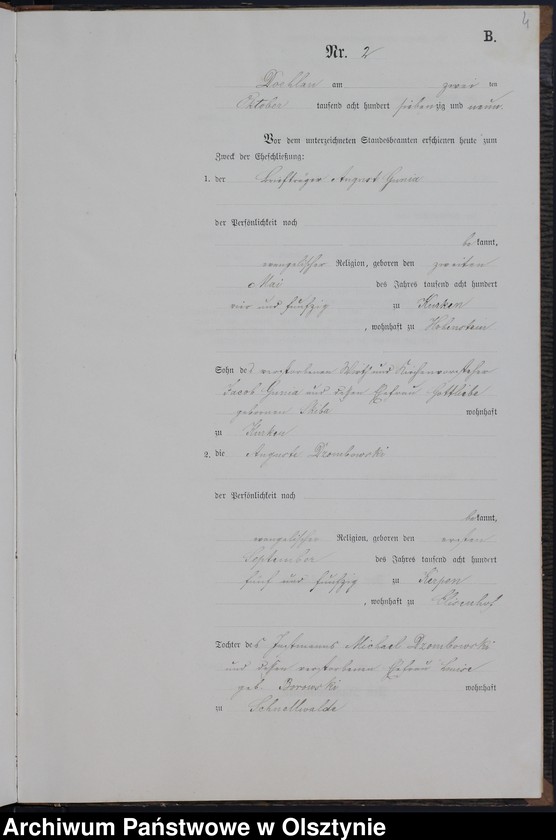 4
B.
Nr. 2
am zwei ten
Oktober tausend acht hundert siebenzig und neun.
Vor dem unterzeichneten Standesbeamten erschienen heute zum
Zweck der Eheschließung:
1. der Briefträger August
der Persönlichkeit nach
be kannt,
evangelischer Religion, geboren den zweiten
Mai des Jahres tausend acht hundert
vier und fünfzig zu Kurken
, wohnhaft zu Hohenstein
Sohn des verstorbenen Wirth und Kirchenvorsteher
Jacob und dessen Ehefrau Gottliebe
geborenen wohnhaft
zu Kurken
2. die Auguste Dzombowski
der Persönlichkeit nach
be kannt,
evangelischer Religion, geboren den ersten
September des Jahres tausend acht hundert
fünf und fünfzig zu Kerpen
, wohnhaft zu
Tochter des Instmanns Michael Dzombowski
und dessen verstorbenen Ehefrau Louise
geb. Borowski wohnhaft
zu Schnellwalde
Archiwum Państwowe w Olsztynie